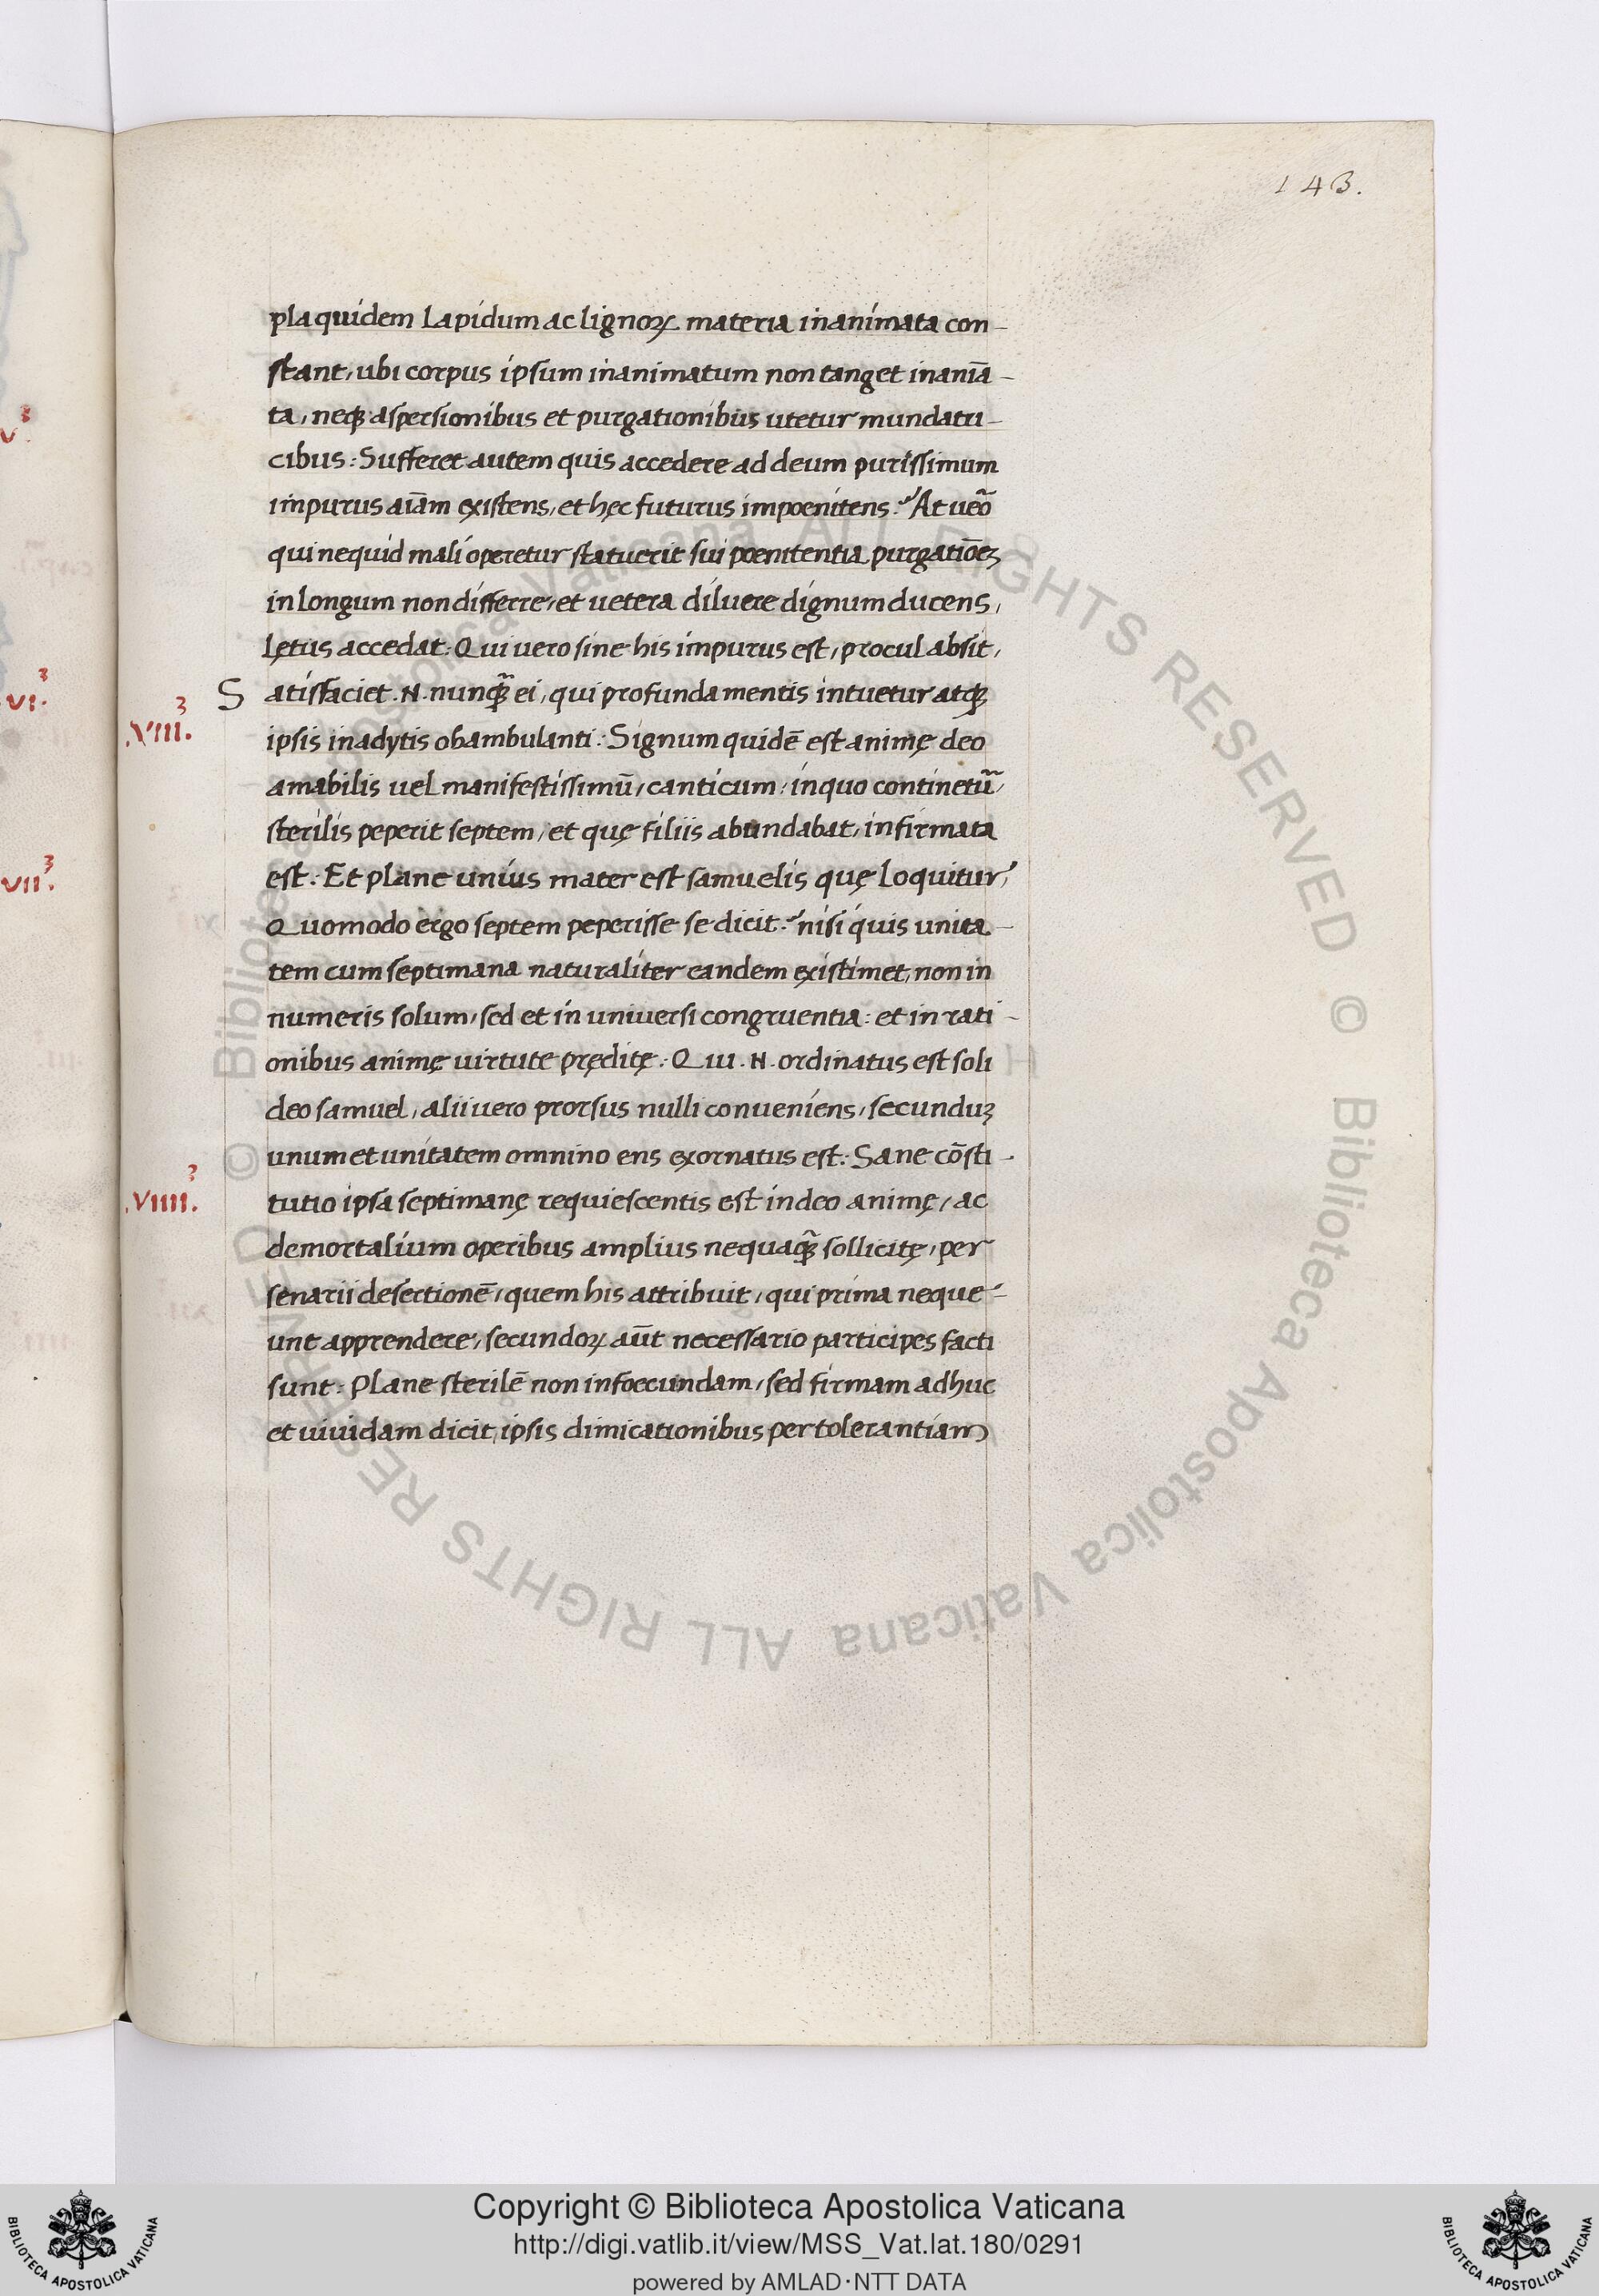 143.
pla quidem lapidum ac lignoꝝ materia inanimata con-
stant, ubi corpus ipsum inanimatum non tanget inanīa-
ta, neqꝫ aspersionibus et purgationibus utetur mundatri-
cibus: Sufferet autem quis accedere ad deum purissimum
impurus aīam existens, et hęc futurus impoenitens? At uēo
qui nequid mali operetur statuerit sui poenitentia purgatiōeꝫ
in longum non differre, et uetera diluere dignum ducens,
lętus accedat: Qui uero sine his impurus est, procul absit,
VIII. Satisfaciet .N. nunqꝫ̄ ei, qui profunda mentis intuetur atqꝫ
ipsis in adytis obambulanti: Signum quidē est animę deo
amabilis uel manifestissimū, canticum, in quo continetū,
sterilis peperit septem, et quę filiis abundabat, infirmata
est: Et plane unius mater est samuelis quę loquitur,
Quomodo ergo septem peperisse se dicit? nisi quis unita-
tem cum septimana naturaliter eandem existimet, non in
numeris solum, sed et in uniuersi congruentia: et in rati-
onibus animę uirtute prędite̜: Qui .N. ordinatus est soli
deo samuel, alii uero prorsus nulli conueniens, secunduꝫ
unum et unitatem omnino ens exornatus est: Sane cōsti-
VIIII. tutio ipsa septimanę requiescentis est in deo animę, ac
de mortalium operibus amplius nequaqꝫ̄ sollicitę, per
senarii desertionē, quem his attribuit, qui prima neque-
unt apprendere, secundoꝝ aūt necessario participes facti
sunt: Plane sterilē non infoecundam, sed firmam adhuc
et uiuidam dicit, ipsis dimicationibus per tolerantiam
VI.
VII.
Copyright © Biblioteca Apostolica Vaticana
http://digi.vatlib.it/view/MSS_Vat.lat.180/0291
powered by AMLAD·NTT DATA